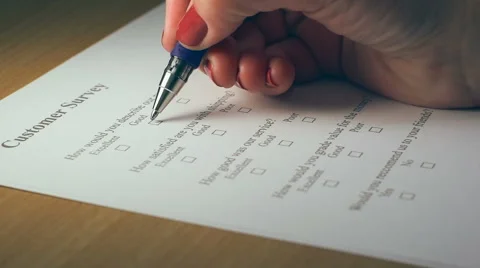 Customer Survey
How would you describe our
Excellent Good
How satisfied are you with shipping?
Excellent Good Poor
How good was our service?
Excellent Good Poor
How would you grade value for the
Excellent Good Poor
Would you recommend us to your friends?
Yes No